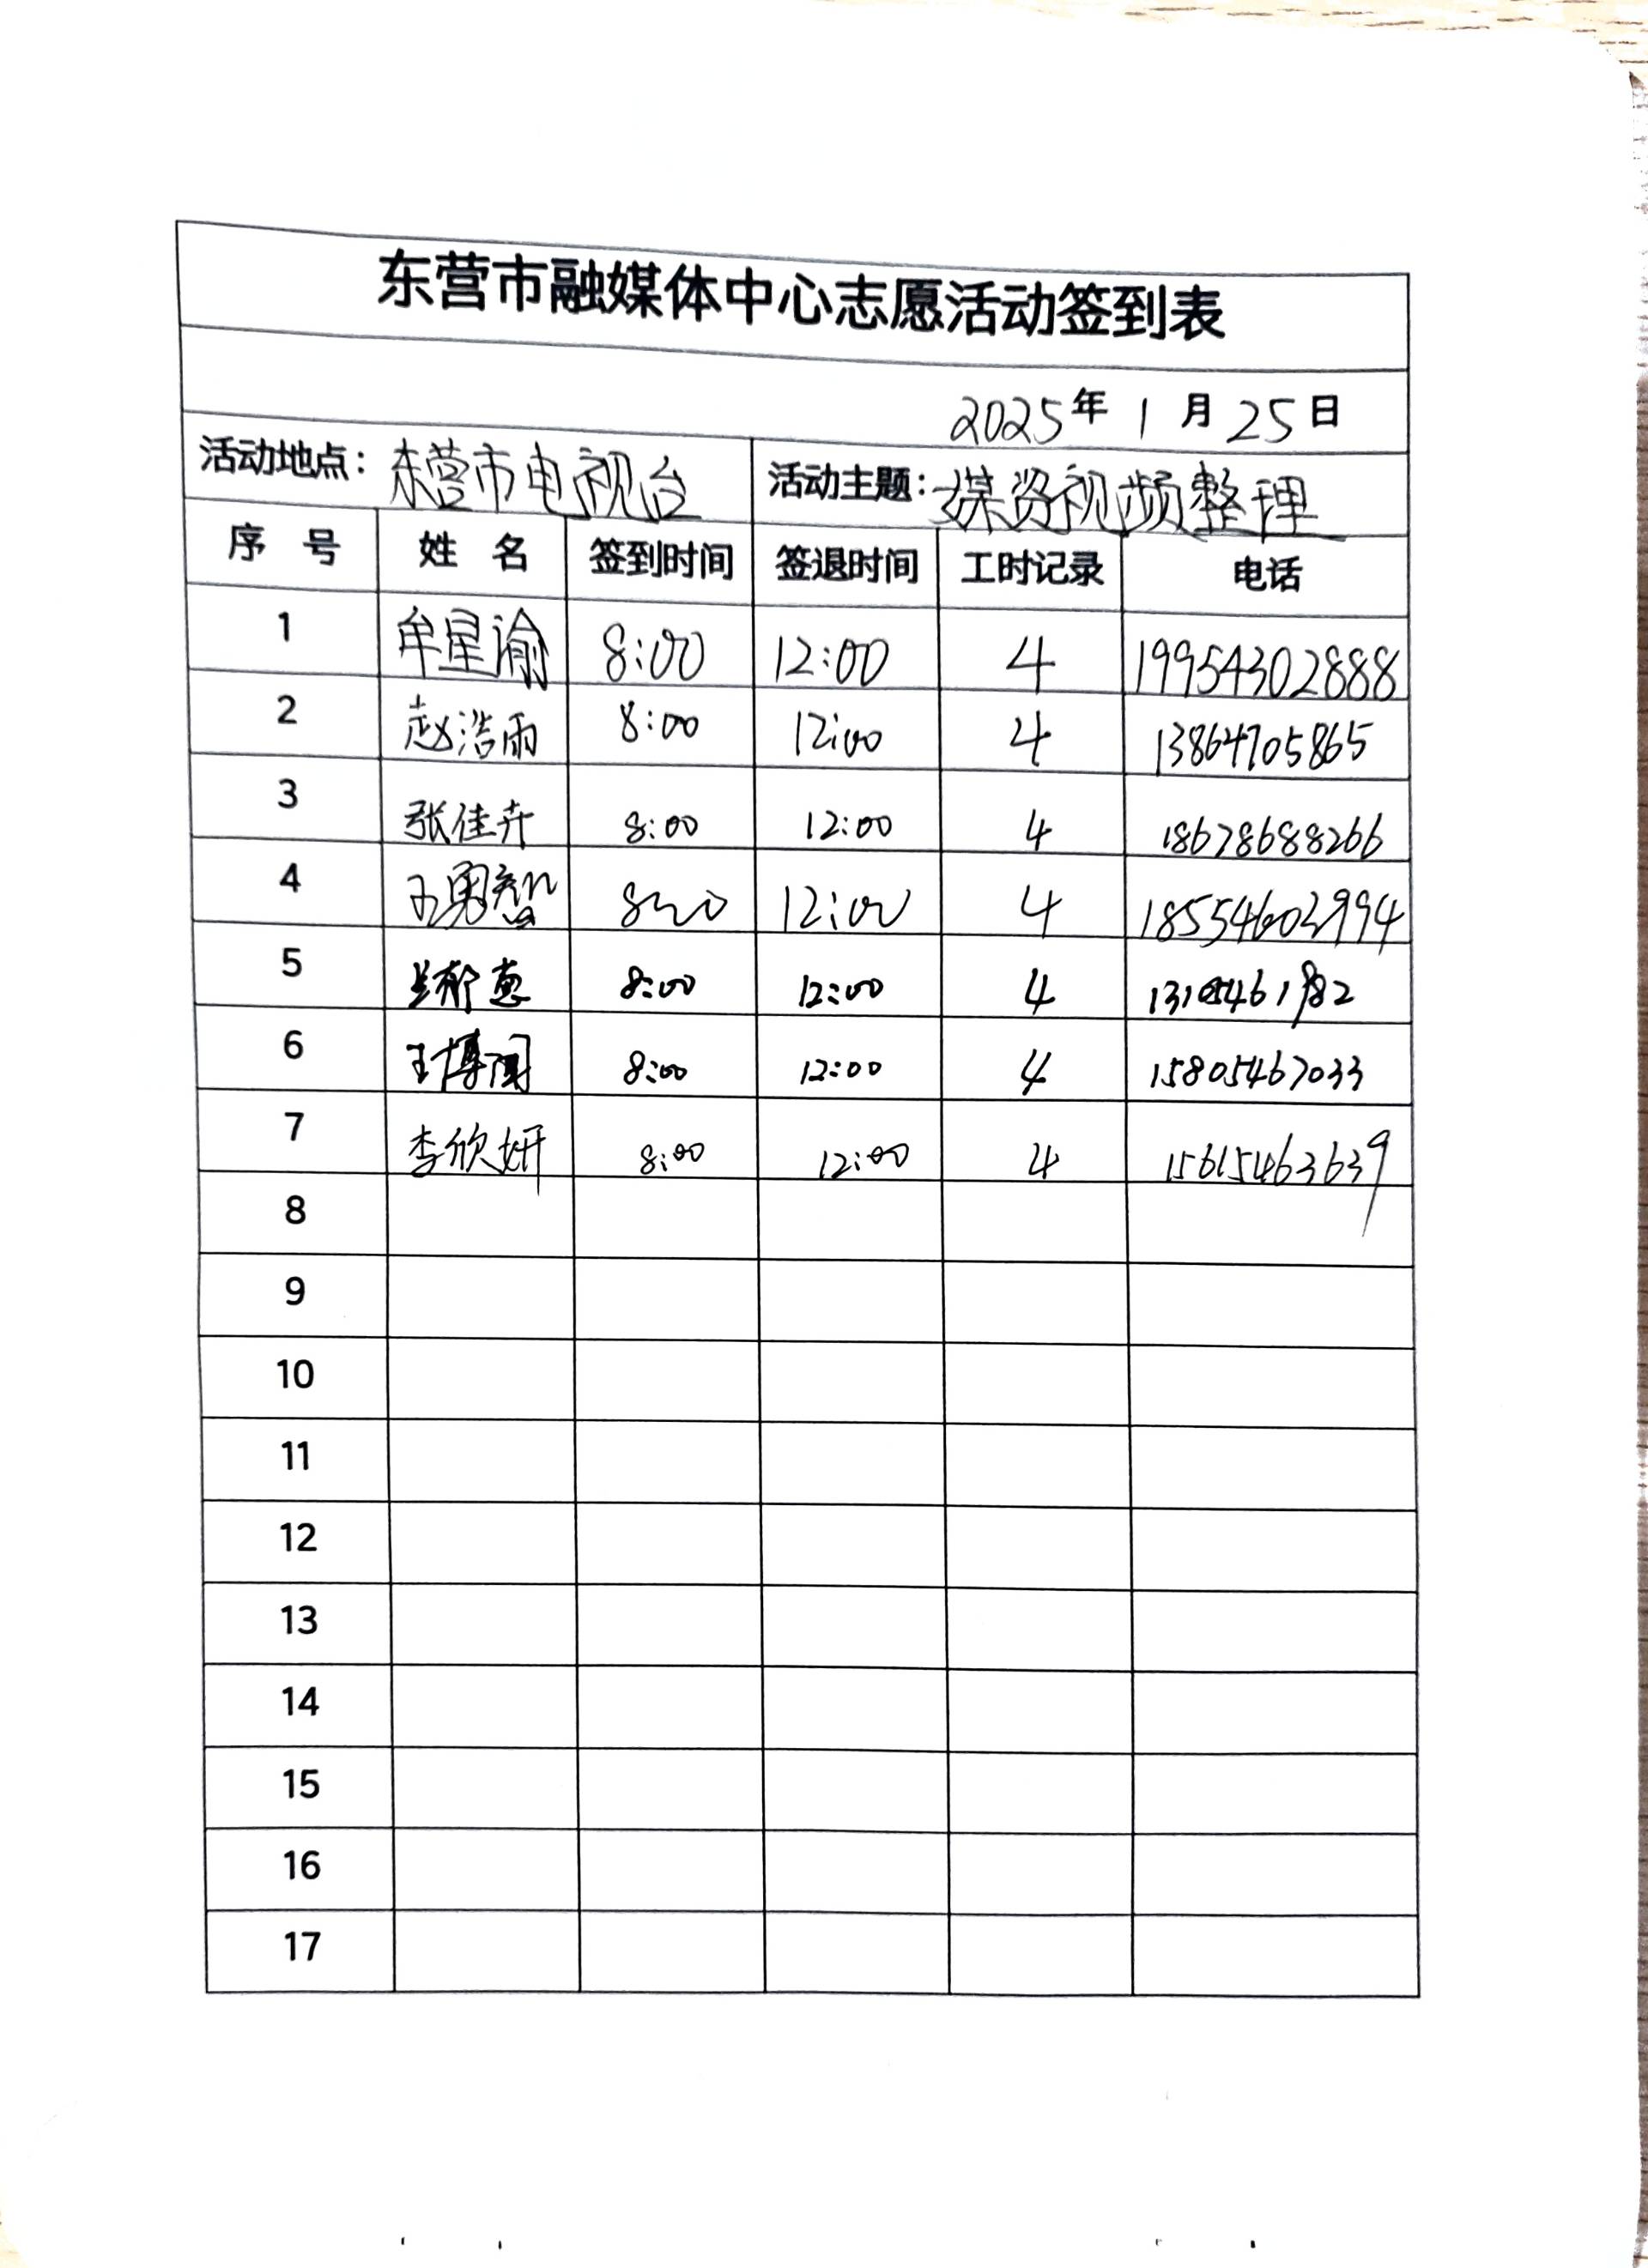 东营市融媒体中心志愿活动签到表
2025年 1 月 25日
活动地点：东营市电视台 活动主题：媒资视频整理
序 号 姓 名 签到时间 签退时间 工时记录 电话
1 牟星谕 8:00 12:00 4 19954302888
2 赵浩雨 8:00 12:00 4 13864705865
3 张佳卉 8:00 12:00 4 18678688266
4 王勇智 8:00 12:00 4 18554602994
5 8:00 12:00 4
6 王博闻 8:00 12:00 4 15805467033
7 李欣妍 8:00 12:00 4 15615463639
8
9
10
11
12
13
14
15
16
17